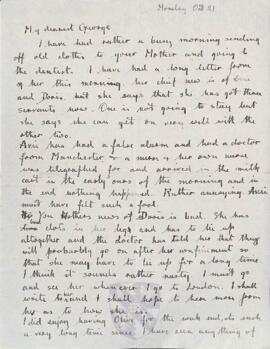 Monday Oct 21
My dearest George
I have had rather a busy morning sending
off old cloths to your Mother and going to
the dentist. I have had a long letter from
her this morning, her chief new is of
and Doris, but she says that she has got three
servants now. One is not going to stay but
she says she can get on very well with the
other two.
had a false alarm and had a doctor
from Manchester & a nurse & her own nurse
was telegraphed for and arrived in the milk
cart in the early ones of the morning and in
the end nothing happened. Rather annoying
must have felt such a fool.
Your Mothers news of Doris is bad. She has
two clots in her legs and has to lie up
altogether and the doctor has told her that they
will probably go on after her confinement so
that she may have to lie up for a long time.
I think it sounds rather nasty. I must go
and see her whenever I go to London. I shall
write and I shall hope to hear more from
her as to how she is.
I did enjoy having Olive for the week end, its such
a very long time since I have seen anything of